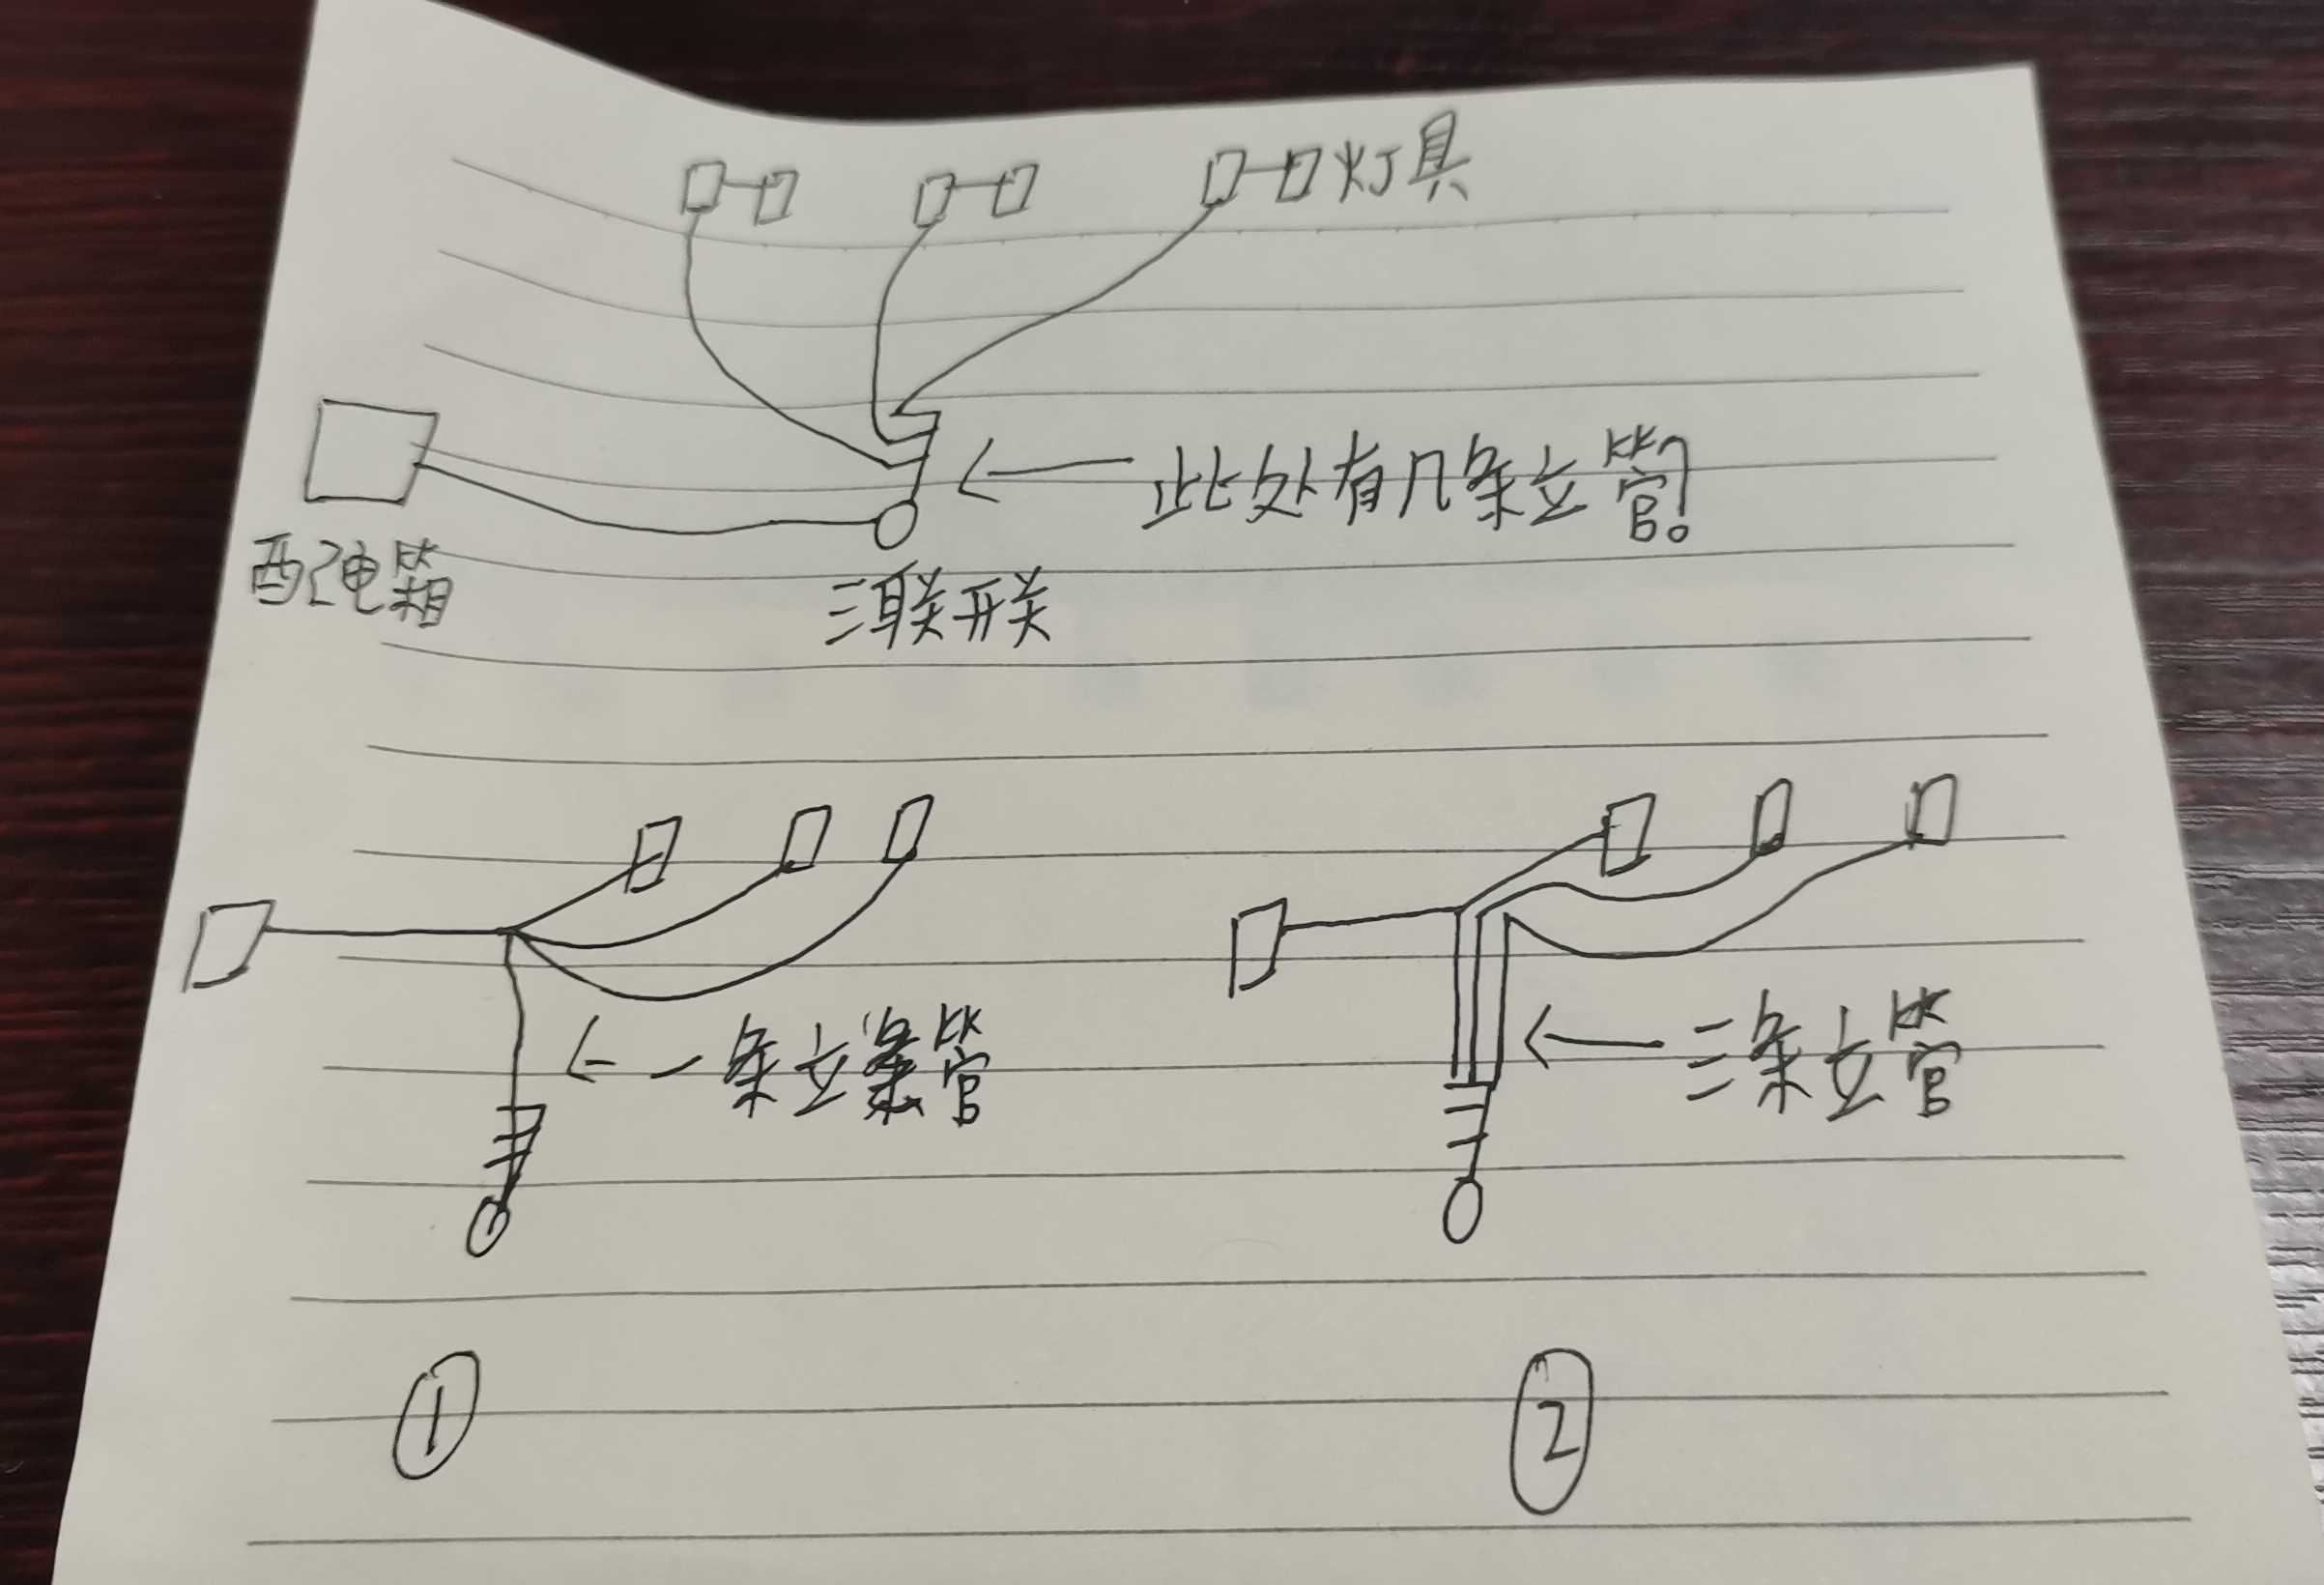 灯具
此处有几条立管?
配电箱
三联开关
一条立管
三条立管
①
②